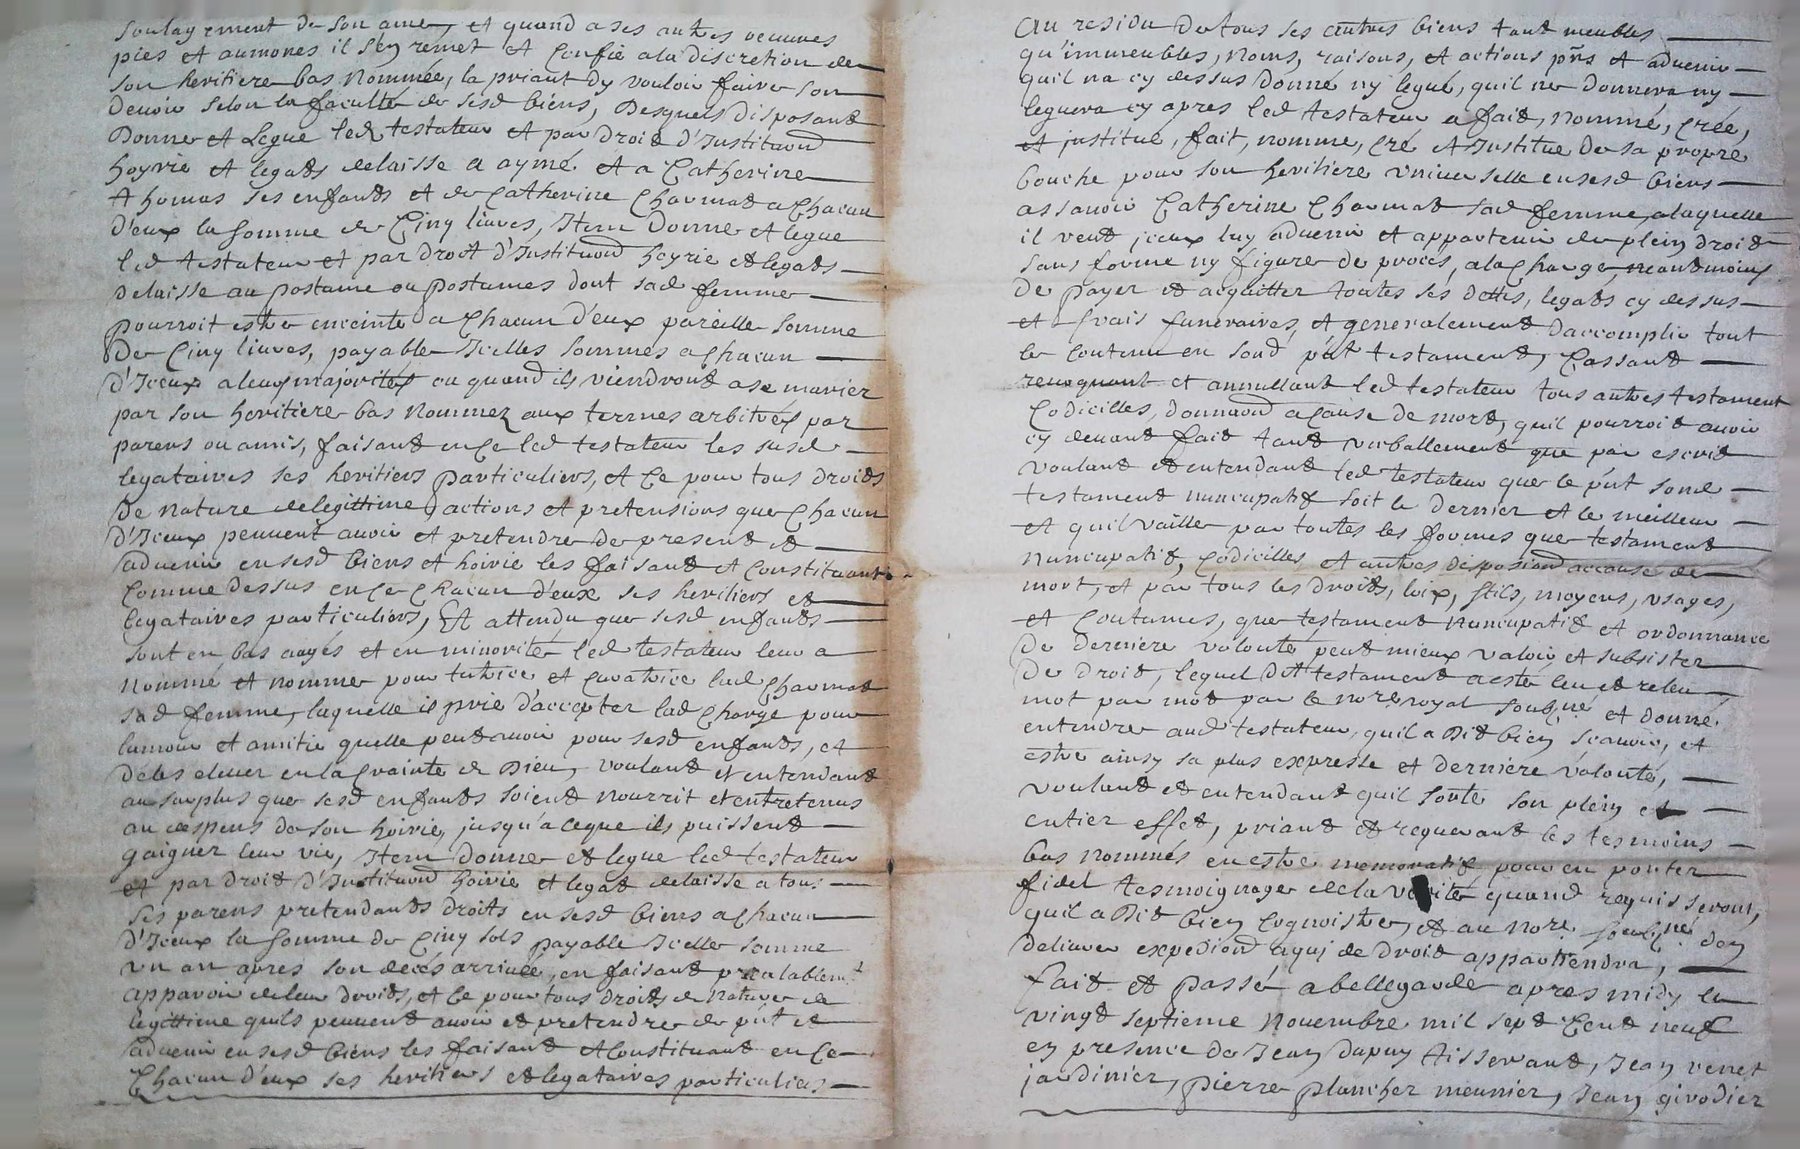 soulagement de son ame, et quand a ses autres oeuures
pies et aumones il s'en remet et confie a la discretion de
son heritiere bas nommée, la priant dy vouloir faire son
devoir selon la faculté de sesd biens, Desquels disposant
Donne et Legue led testateur et par droit d'Institucion
hoyrie et legats delaisse a aymé et a Catherine
thomas ses enfants et de Catherine Charmat a chacun
d'eux la somme de Cinq liures, Item Donne et legue
led testateur et par droit d'Institucion hoyrie et legats
delaisse au postume ou postumes dont sad femme
pourroit estre enceinte a chacun d'eux pareille somme
De Cinq liures, payable Icelles sommes a chacun
d'Iceux a leurs majorités ou quand ils viendront a se marier
par son heritiere bas nommez aux termes arbitrés par
parens ou amis, faisant en ce led testateur les susd
legataires ses heritiers particuliers, et ce pour tous droits
De nature de legittime, actions et pretensions que chacun
d'Iceux peuuent auoir et pretendre de present et
aduenir en sesd biens et hoirie les faisant et constituant
comme dessus en ce chacun d'eux ses heritiers et
legataires particuliers, Et attendu que sesd enfants
sont en bas aagés et en minorité led testateur leur a
nommé et nomme pour tutrice et curatrice lad Charmat
sad femme, laquelle il prie d'accepter lad charge pour
lamour et amitie quelle peut auoir pour sesd enfants, et
de les eleuer en la crainte de Dieu, voulant et entendant
au surplus que sesd enfants soient nourrit et entretenus
au despens de son hoirie, jusqu'a ce que ils puissent
gaigner leur vie, Item donne et legue led testateur
et par droit d'Institucion hoirie et legat delaisse a tous
ses parens pretendants droits en sesd biens a chacun
d'Iceux la somme de Cinq sols payable Icelle somme
un an apres son decés arriué, en faisant prealablemt
apparoir de leur droits, et ce pour tous droits de nature de
legittime quils peuuent auoir et pretendre de pnt et
aduenir en sesd biens les faisant et constituant en ce
chacun d'eux ses heritiers et legataires particuliers
Au residu de tous ses autres biens tant meubles
qu'immeubles, noms, raisons, et actions pns et aduenir
quil na cy dessus donné ny legué, quil ne donnera ny
leguera cy apres led testateur a fait, nommé, créé,
et justitué, fait, nomme, cré et Institue de sa propre
bouche pour son heritiere uniuerselle en sesd biens
assauoir Catherine Charmat sad femme, a laquelle
il veut jceux luy aduenir et appartenir de plein droit
sans forme ny figure de procés, a la charge neantmoins
De payer et acquitter toutes ses dettes, legats cy dessus
et frais funeraires, et generalement daccomplir tout
le contenu en sond pnt testament, Cassant
reuoquant et annullant led testateur tous autres testament
Codicilles, donnaond a cause de mort, quil pourroit auoir
cy deuant fait tant verballement que par escrit
voulant et entendant led testateur que le pnt sond
testament nuncupatif soit le dernier et le meilleur
et quil vaille par toutes les formes que testament
nuncupatif, codicilles et autres disposiond accause de
mort, et par tous les droits, loix, stils, moyens, usages,
et coutumes, que testament nuncupatif et ordonnance
De derniere volonté peut mieux valoir et subsister
De droit, lequel dit testament a esté leu et releu
mot par mot par le nore royal soubné et donné
entendre aud testateur, quil a Dit bien scauoir, et
estre ainsy sa plus expresse et derniere volonté,
voulant et entendant quil sorte son plein et
entier effet, priant et requerant les tesmoins
bas nommés en estre memoratif, pour en porter
fidel tesmoignage de la verité quand requis seront,
quil a Dit bien cognoistre, et au nore soubné den
deliurer expediond a qui de droit appartiendra,
fait et passé a bellegarde apres midy le
vingt septieme Nouembre mil sept Cent neuf
en presence de Jean dupuy tisserant, Jean verret
jardinier, pierre plancher meunier, Jean girodier